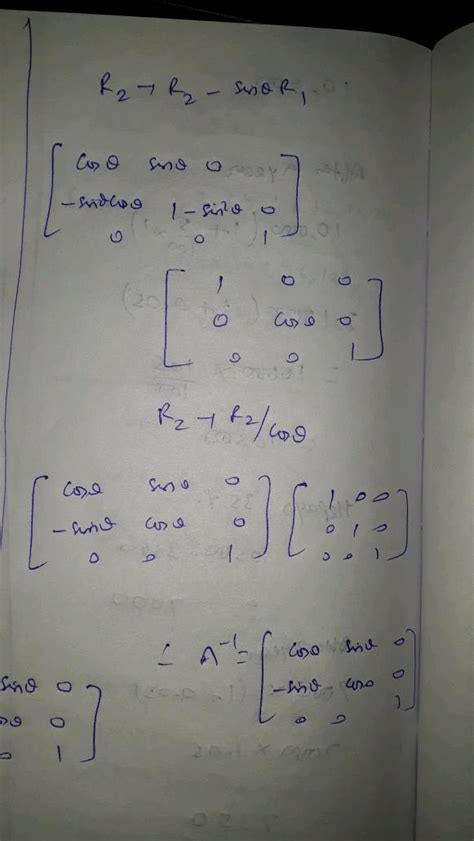 R₂ → R₂ - sinθ R₁
[ cosθ sinθ 0
-sinθcosθ 1-sin²θ 0
0 0 1 ]
[ 1 0 0
0 cosθ 0
0 0 1 ]
R₂ → R₂/cosθ
[ cosθ sinθ 0
-sinθ cosθ 0
0 0 1 ] [ 1 0 0
0 1 0
0 0 1 ]
∴ A⁻¹ = [ cosθ sinθ 0
-sinθ cosθ 0
0 0 1 ]
sinθ 0
0
0 1 ]